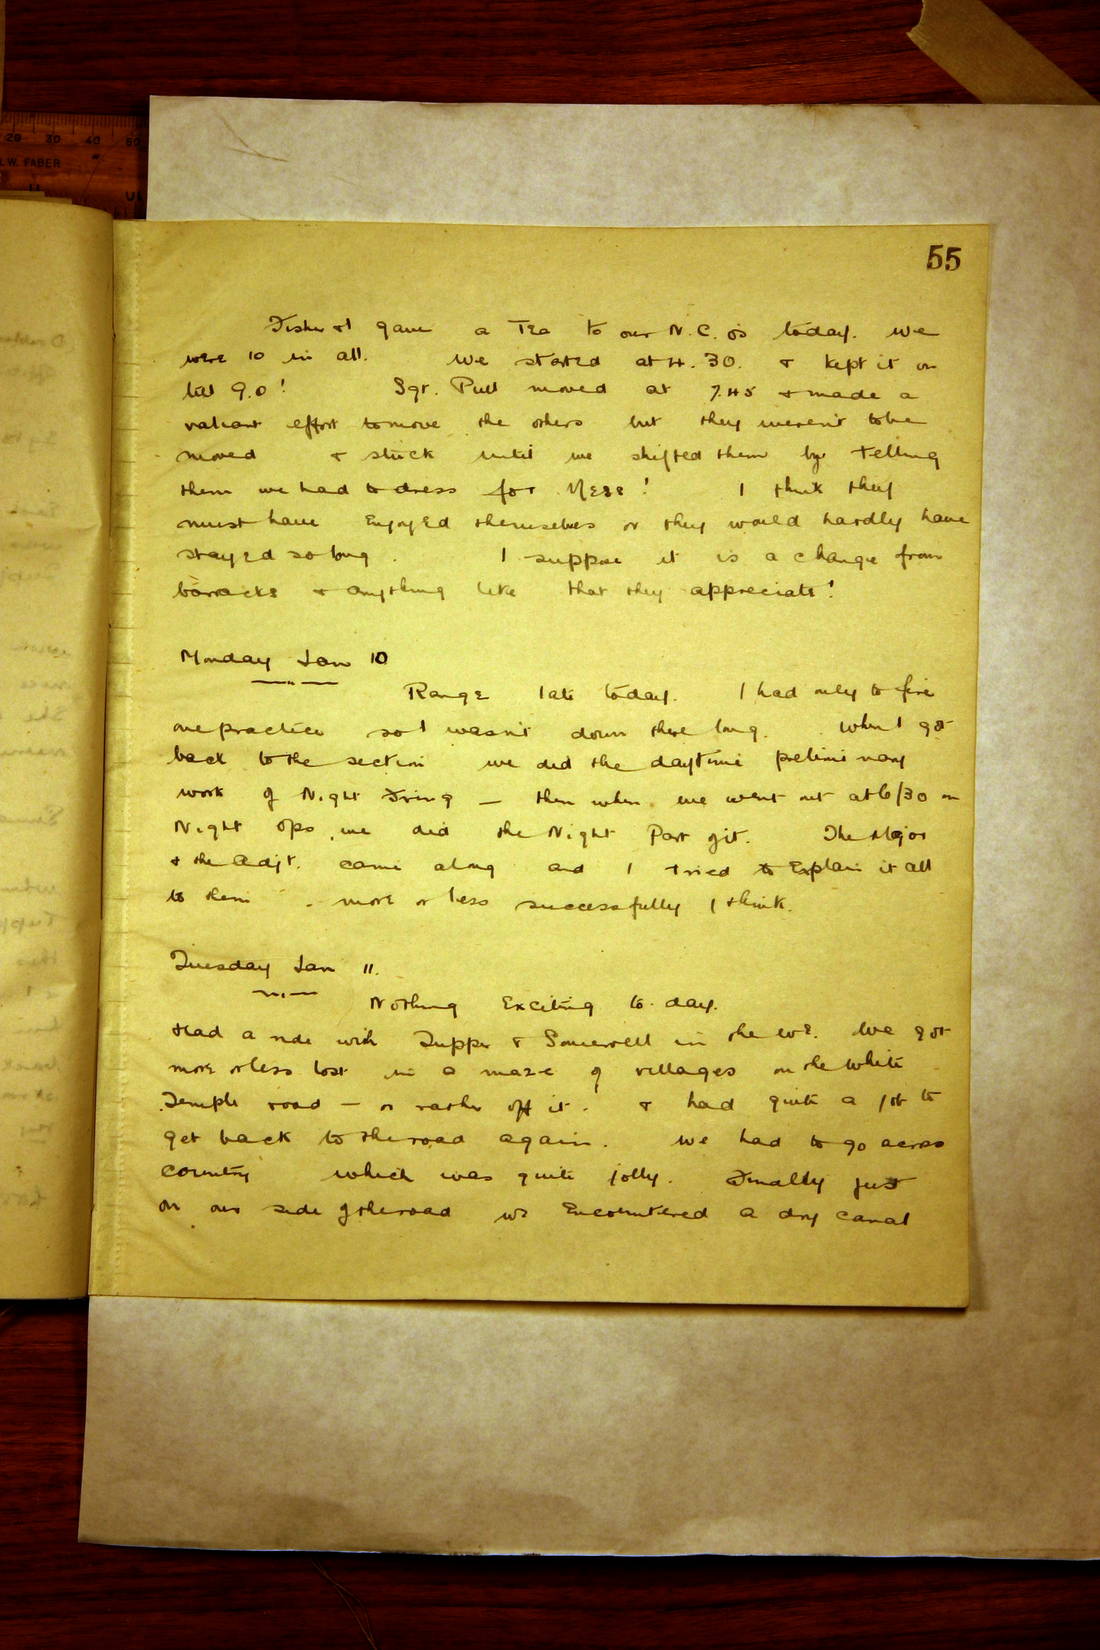 55
Fisher & I gave a Tea to our N.C.Os today. We
were 10 in all. We started at 4.30. & kept it on
till 9.0! Sgt. Pull moved at 7.45 & made a
valiant effort to move the others but they weren't to be
moved & stuck until we shifted them by telling
them we had to dress for Mess! I think they
must have enjoyed themselves or they would hardly have
stayed so long. I suppose it is a change from
barracks & anything like that they appreciate!
Monday Jan 10
Range late today. I had only to fire
one practice so I wasn't down there long. When I got
back to the section we did the daytime preliminary
work of Night Firing — then when we went out at 6/30 on
Night Ops, we did the Night Part of it. The Major
& the Adjt. came along and I tried to Explain it all
to them. more or less successfully I think.
Tuesday Jan 11.
Nothing Exciting to day.
Had a ride with Tupper & Somervell in the eve. We got
more or less lost in a maze of villages on the White
Temple road — or rather off it. & had quite a job to
get back to the road again. We had to go across
country which was quite jolly. Finally just
on our side of the road we Encountered a dry canal
20 30 40
W. FABER